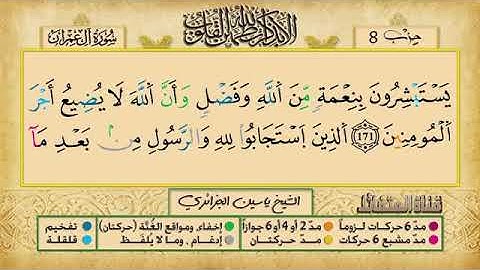 حزب 8
ألا بذكر الله تطمئن القلوب
سورة آل عمران
يَسْتَبْشِرُونَ بِنِعْمَةٍ مِّنَ اَ۬للَّهِ وَفَضْلٍ وَأَنَّ اَ۬للَّهَ لَا يُضِيعُ أَجْرَ
اَ۬لْمُومِنِينَ 171 اَ۬لذِينَ اَ۪سْتَجَابُوا لِلهِ وَالرَّسُولِ مِنۢ بَعْدِ مَآ
الشيخ ياسين الجزائري
مدّ 6 حركات لزوماً مدّ 2 أو 4 أو 6 جوازاً إخفاء، ومواقع الغُنَّة (حركتان) تفخيم
مدّ مشبع 6 حركات مدّ حركتان إدغام، وما لا يُلفَظ قلقلة